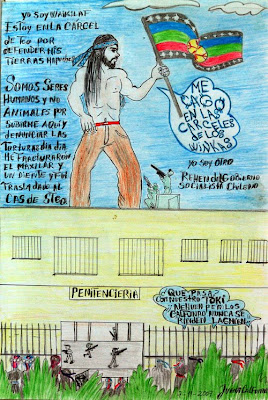 YO SOY WAIKILAF
ESTOY EN LA CARCEL
DE Tco POR
DEFENDER MIS
TIERRAS MAPUCHE
SOMOS SERES
HUMANOS Y NO
ANIMALES POR
SUBIRME AQUÍ Y
DENUNCIAR LAS
TORTURAS DIA DIA
ME FRACTURARON
EL MAXILAR Y
UN DIENTE Y FUI
TRASLADADO AL
CAS DE STGO.
ME
CAGO
EN LAS
CARCELES
DE LOS
WINKAS
YO SOY OTRO
REHEN DEL GOBIERNO
SOCIALISTA CHILENO
PENITENCIERIA
¿QUE PASA
CON NUESTRO TOKI
NEHUEN PEÑI LOS
CALFUNAO NUNCA SE
RINDEN LAGMEN
2007